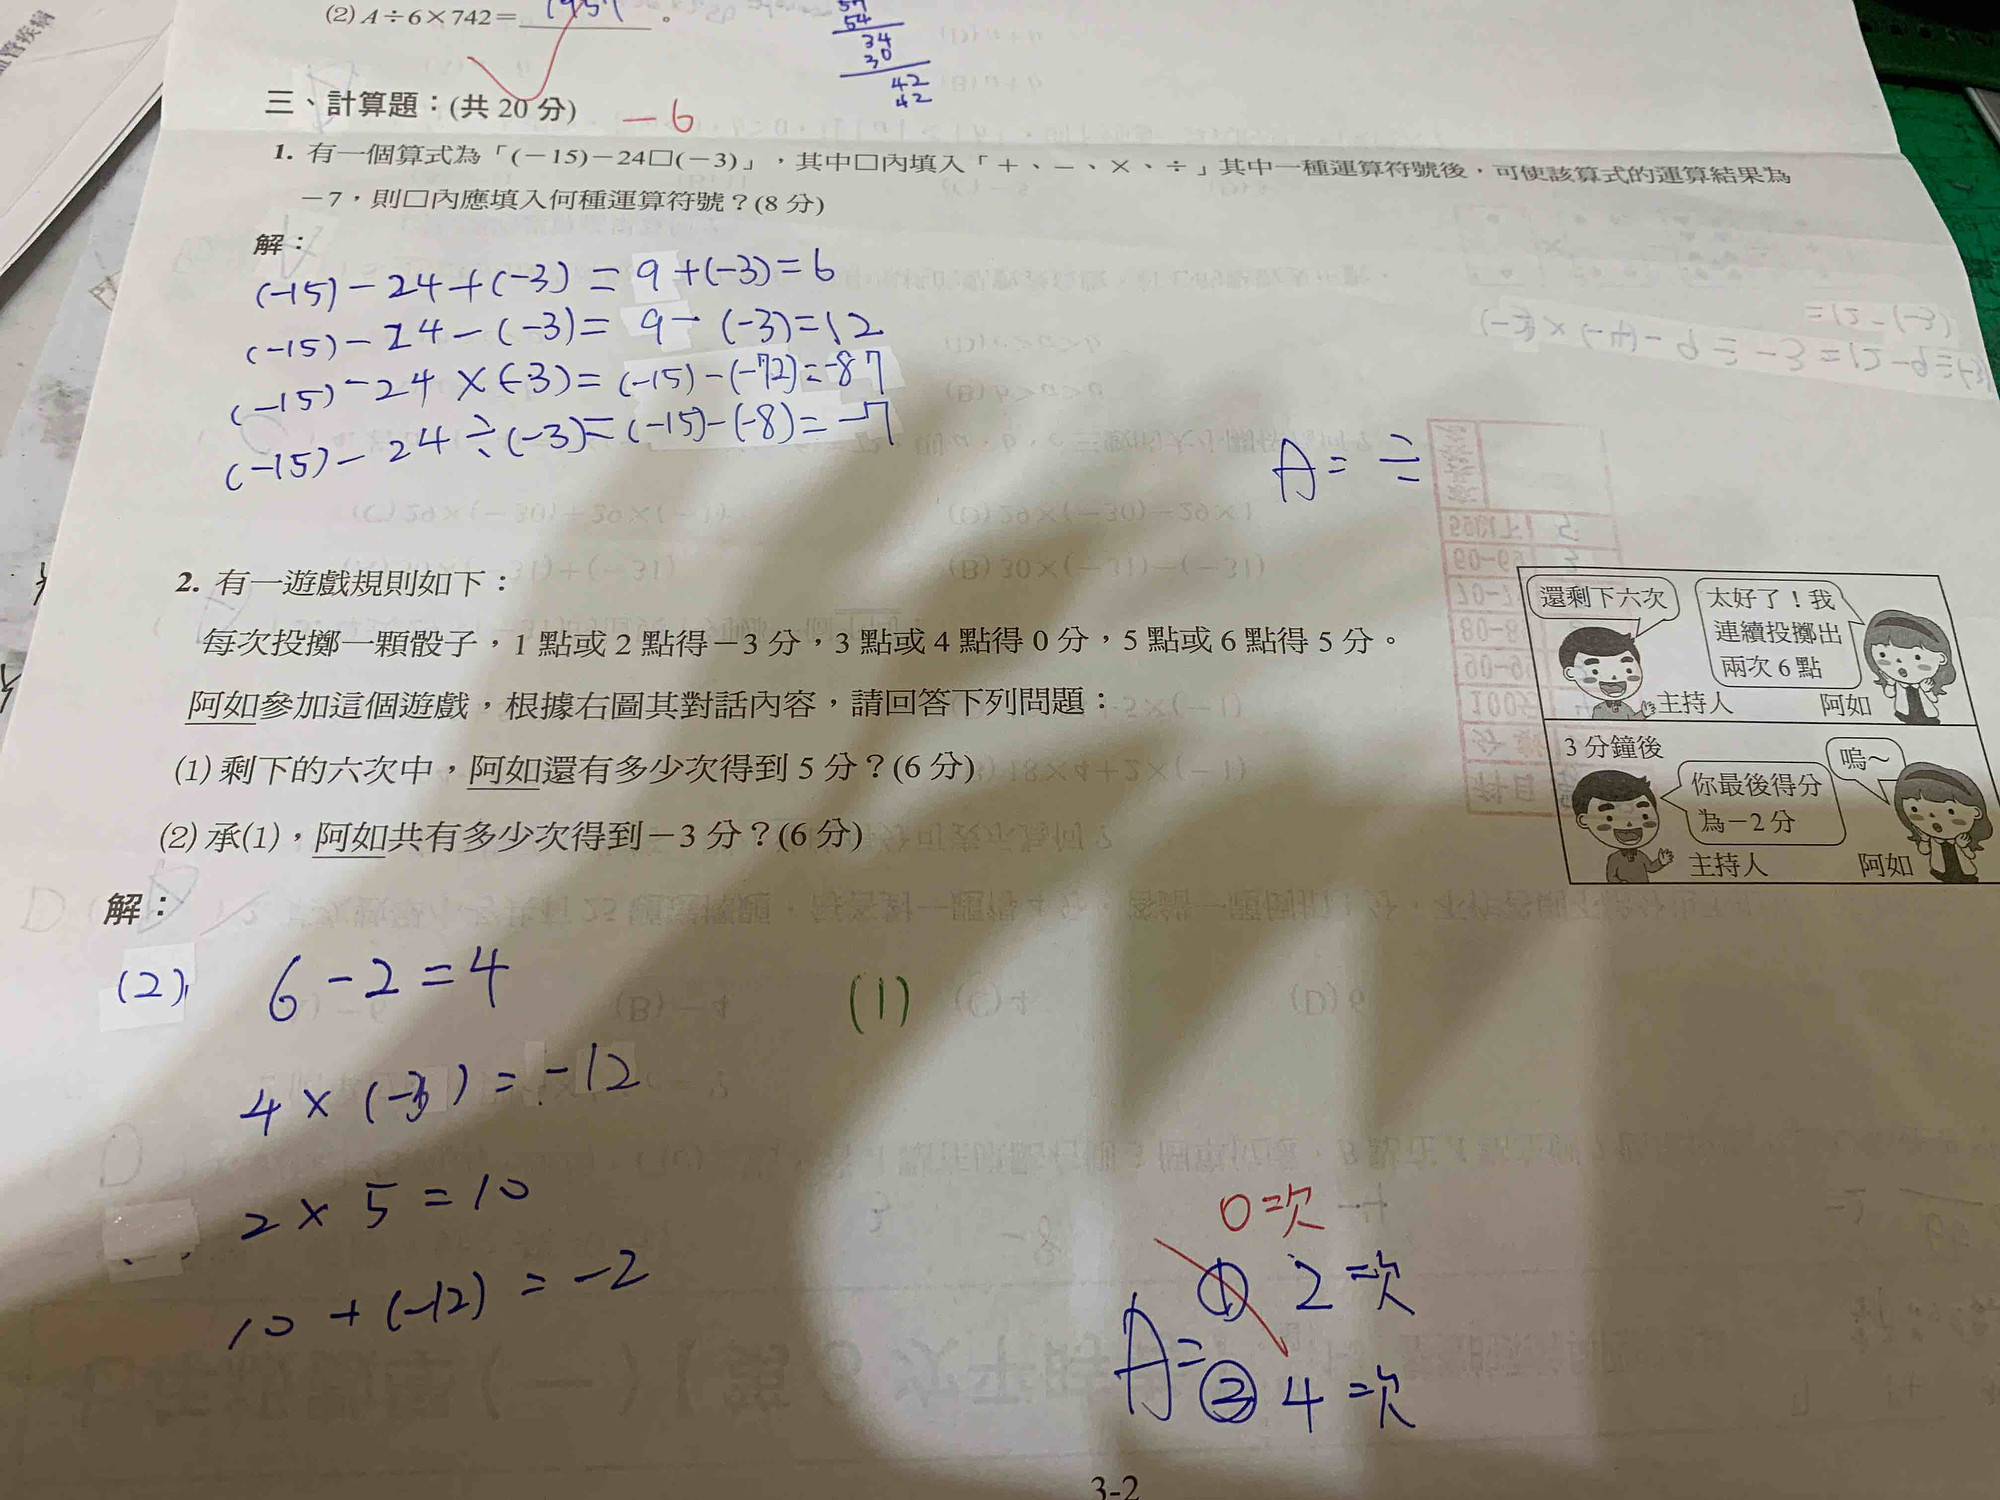 (2) A÷6×742=
54
34
30
42
42
三、計算題：(共 20 分)
－6
1. 有一個算式為「(－15)－24□(－3)」，其中□內填入「＋、－、×、÷」其中一種運算符號後，可使該算式的運算結果為
－7，則□內應填入何種運算符號？(8 分)
解：
(-15)-24+(-3)=9+(-3)=6
(-15)-24-(-3)=9-(-3)=12
(-15)-24×(-3)=(-15)-(-72)=-87
(-15)-24÷(-3)=(-15)-(-8)=-7
A=÷
2. 有一遊戲規則如下：
每次投擲一顆骰子，1 點或 2 點得－3 分，3 點或 4 點得 0 分，5 點或 6 點得 5 分。
阿如參加這個遊戲，根據右圖其對話內容，請回答下列問題：
(1) 剩下的六次中，阿如還有多少次得到 5 分？(6 分)
(2) 承(1)，阿如共有多少次得到－3 分？(6 分)
還剩下六次
太好了！我
連續投擲出
兩次 6 點
主持人
阿如
3 分鐘後
你最後得分
為－2 分
嗚～
主持人
阿如
解：
(2)
6-2=4
4×(-3)=-12
2×5=10
10+(-12)=-2
(1)
0次
A=
① 2次
② 4次
3-2